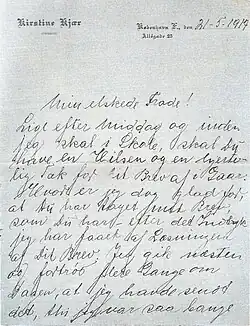 Kirstine Kjær
København F., den 21-5-1919
Allégade 23
Min elskede Frode!
Lige efter Middag og inden
jeg skal i Skole, skal Du
have en Hilsen og en hjerte-
lig Tak for dit Brev af i Gaar.
Hvor er jeg dog glad for,
at Du har
som Du har efter det Indtryk
jeg har faaet af Læsningen
af Dit Brev. Jeg gik næsten
og fortrød flere Gange om
Dagen, at jeg havde sendt
det, thi jeg var saa bange